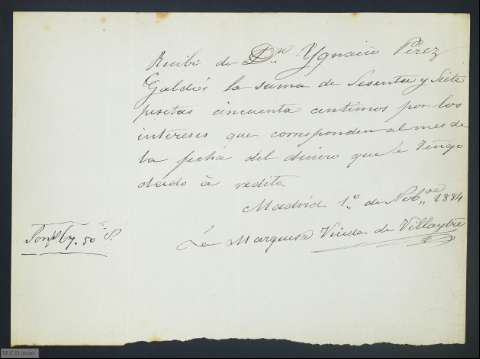 Recibí de Dn. Ygnacio Pérez
Galdós la suma de Sesenta y Siete
pesetas cincuenta centimos por los
intereses que corresponden al mes de
la fecha del dinero que le tengo
dado à redito
Madrid 1º de Nobre 1884
Son 67. 50
La Marquesa Viuda de